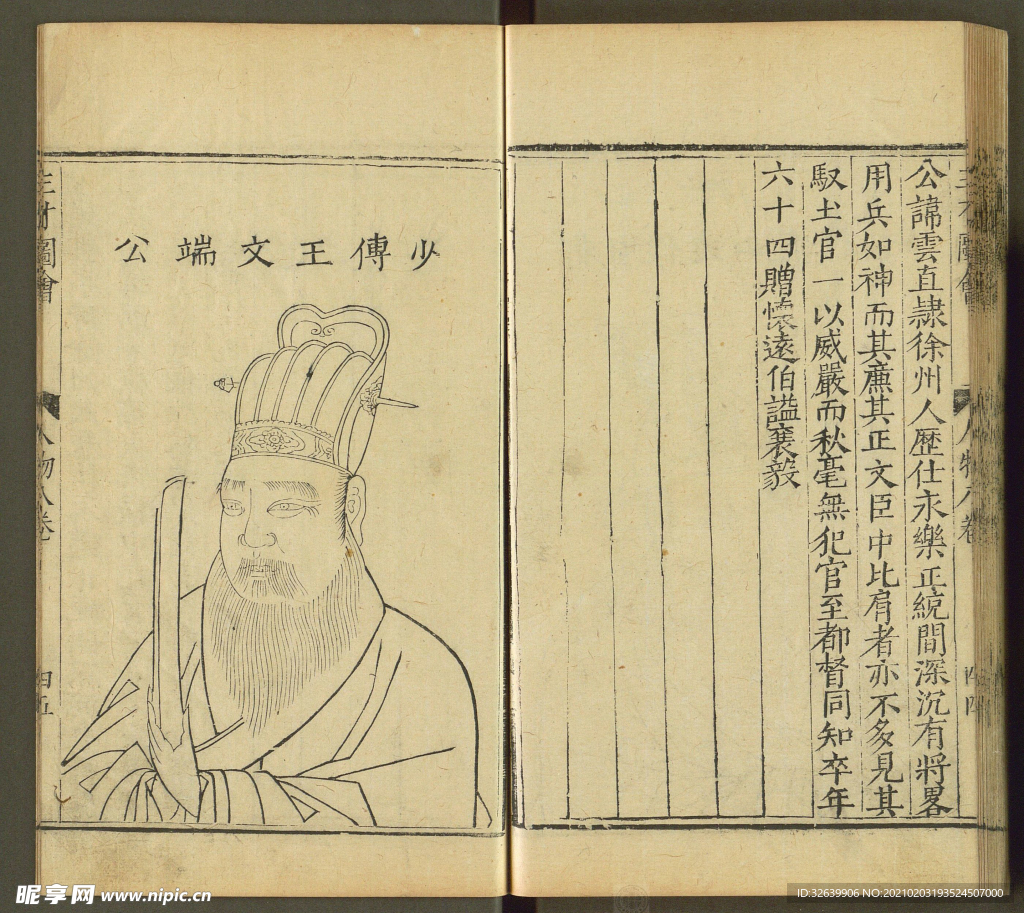 公諱雲直隸徐州人歷仕永樂正統間深沉有將畧
用兵如神而其廉其正文臣中比肩者亦不多見其
馭土官一以威嚴而秋毫無犯官至都督同知卒年
六十四贈懷遠伯謚襄毅
少傳王文端公
三才圖會
人物八卷
四五
三才圖會
人物八卷
四四
昵享网 www.nipic.cn
ID:32639906 NO:20210203193524507000